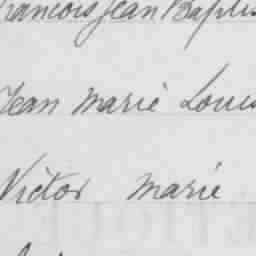 François Jean Baptis
Jean Marie Louis
Victor Marie